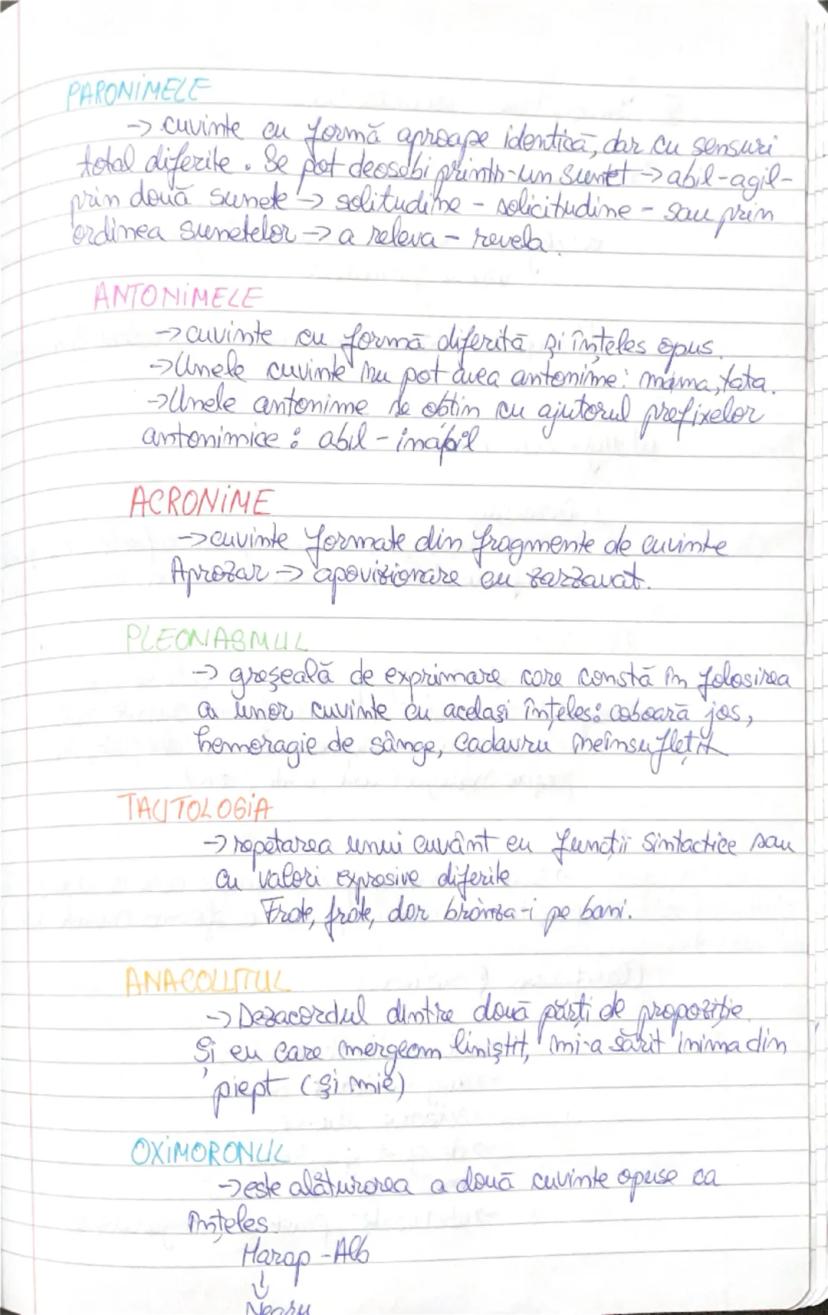 PARONIMELE
-> cuvinte cu formă aproape identică, dar cu sensuri
total diferite. Se pot deosebi printr-un sunet -> abil-agil-
prin două sunete -> solitudine - solicitudine - sau prin
ordinea sunetelor -> a releva - revela.
ANTONIMELE
-> cuvinte cu formă diferită și înțeles opus.
-> Unele cuvinte nu pot avea antonime: mama, tata.
-> Unele antonime se obțin cu ajutorul prefixelor
antonimice: abil - inabil
ACRONIME
-> cuvinte formate din fragmente de cuvinte
Aprozar -> apovizionare cu zarzavat.
PLEONASMUL
-> greșeală de exprimare care constă în folosirea
a unor cuvinte cu același înțeles: coboară jos,
hemoragie de sânge, cadavru neînsuflețit
TAUTOLOGIA
-> repetarea unui cuvânt cu funcții sintactice sau
cu valori exprosive diferite
Frate, frate, dar brânza-i pe bani.
ANACOLUTUL
-> Dezacordul dintire două părți de propoziție
Și eu care mergeam liniștit, mi-a sărit inima din
piept (și mie)
OXIMORONUL
-> este alăturarea a două cuvinte opuse ca
înțeles
Harap - Alb
↓
Negru